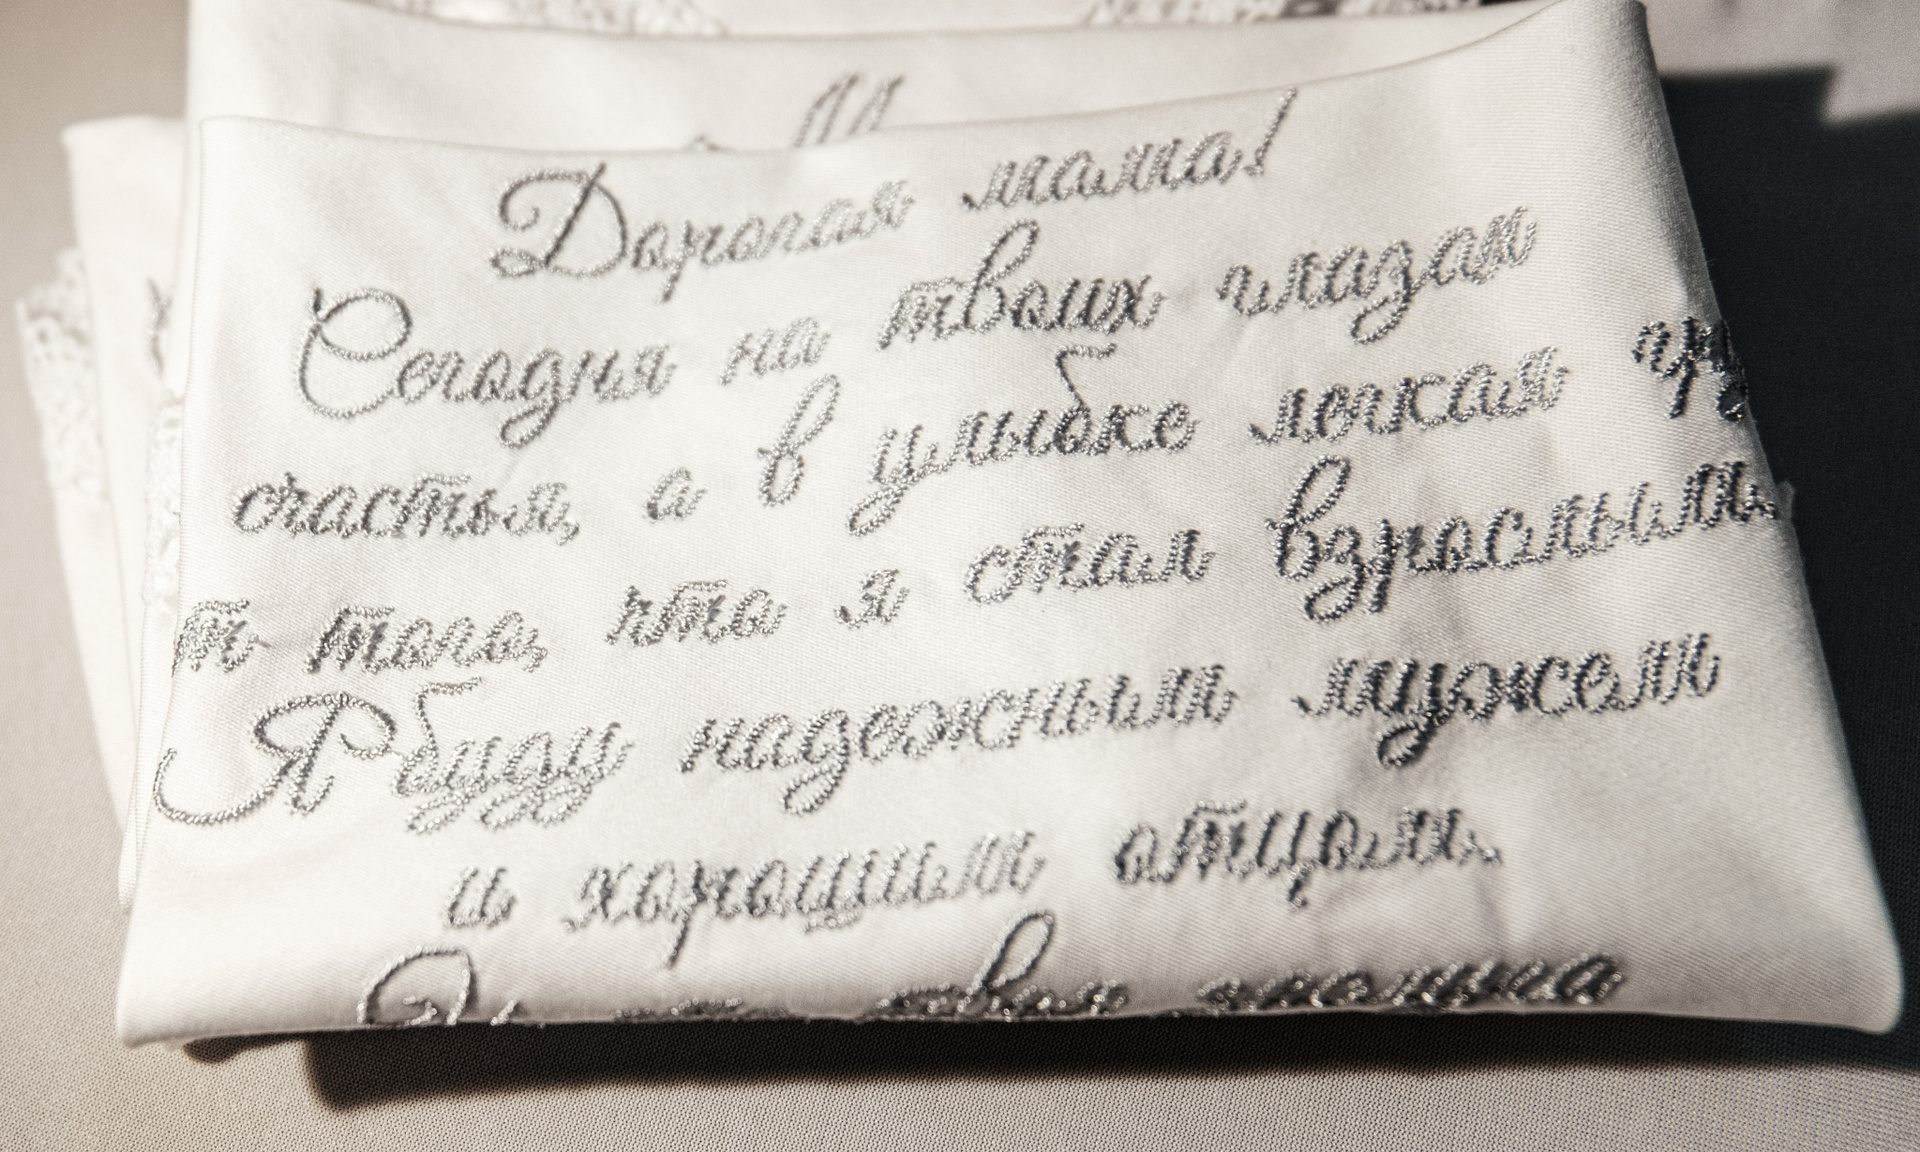 Дорогая мама!
Сегодня на твоих глазах
счастья, а в улыбке легкая гру
т того, что я стал взрослым.
Я буду надежным мужем
и хорошим отцом.
твоя